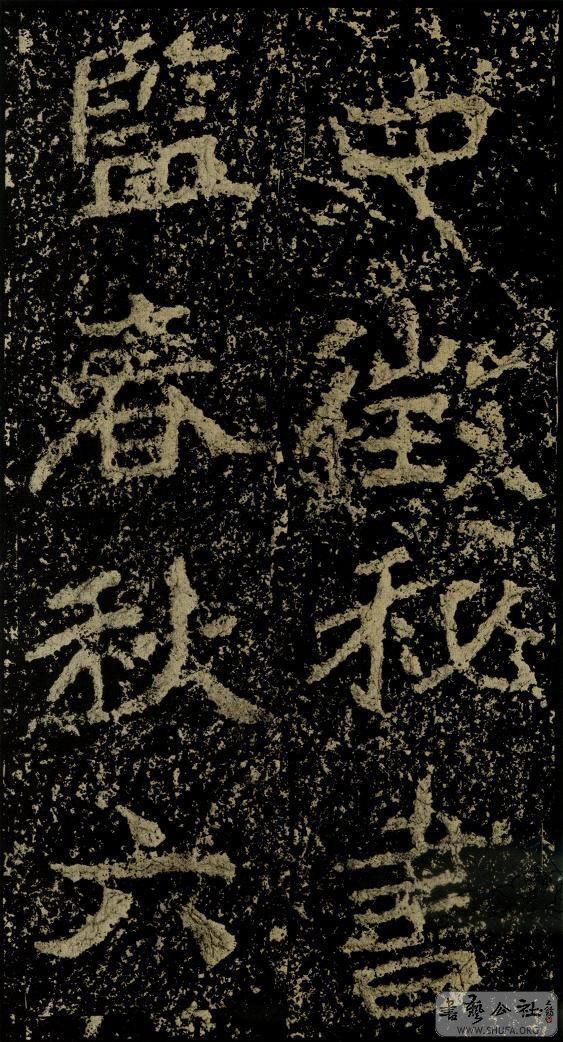 史徵秘書
監春秋六
書藝公社
WWW.SHUFA.ORG